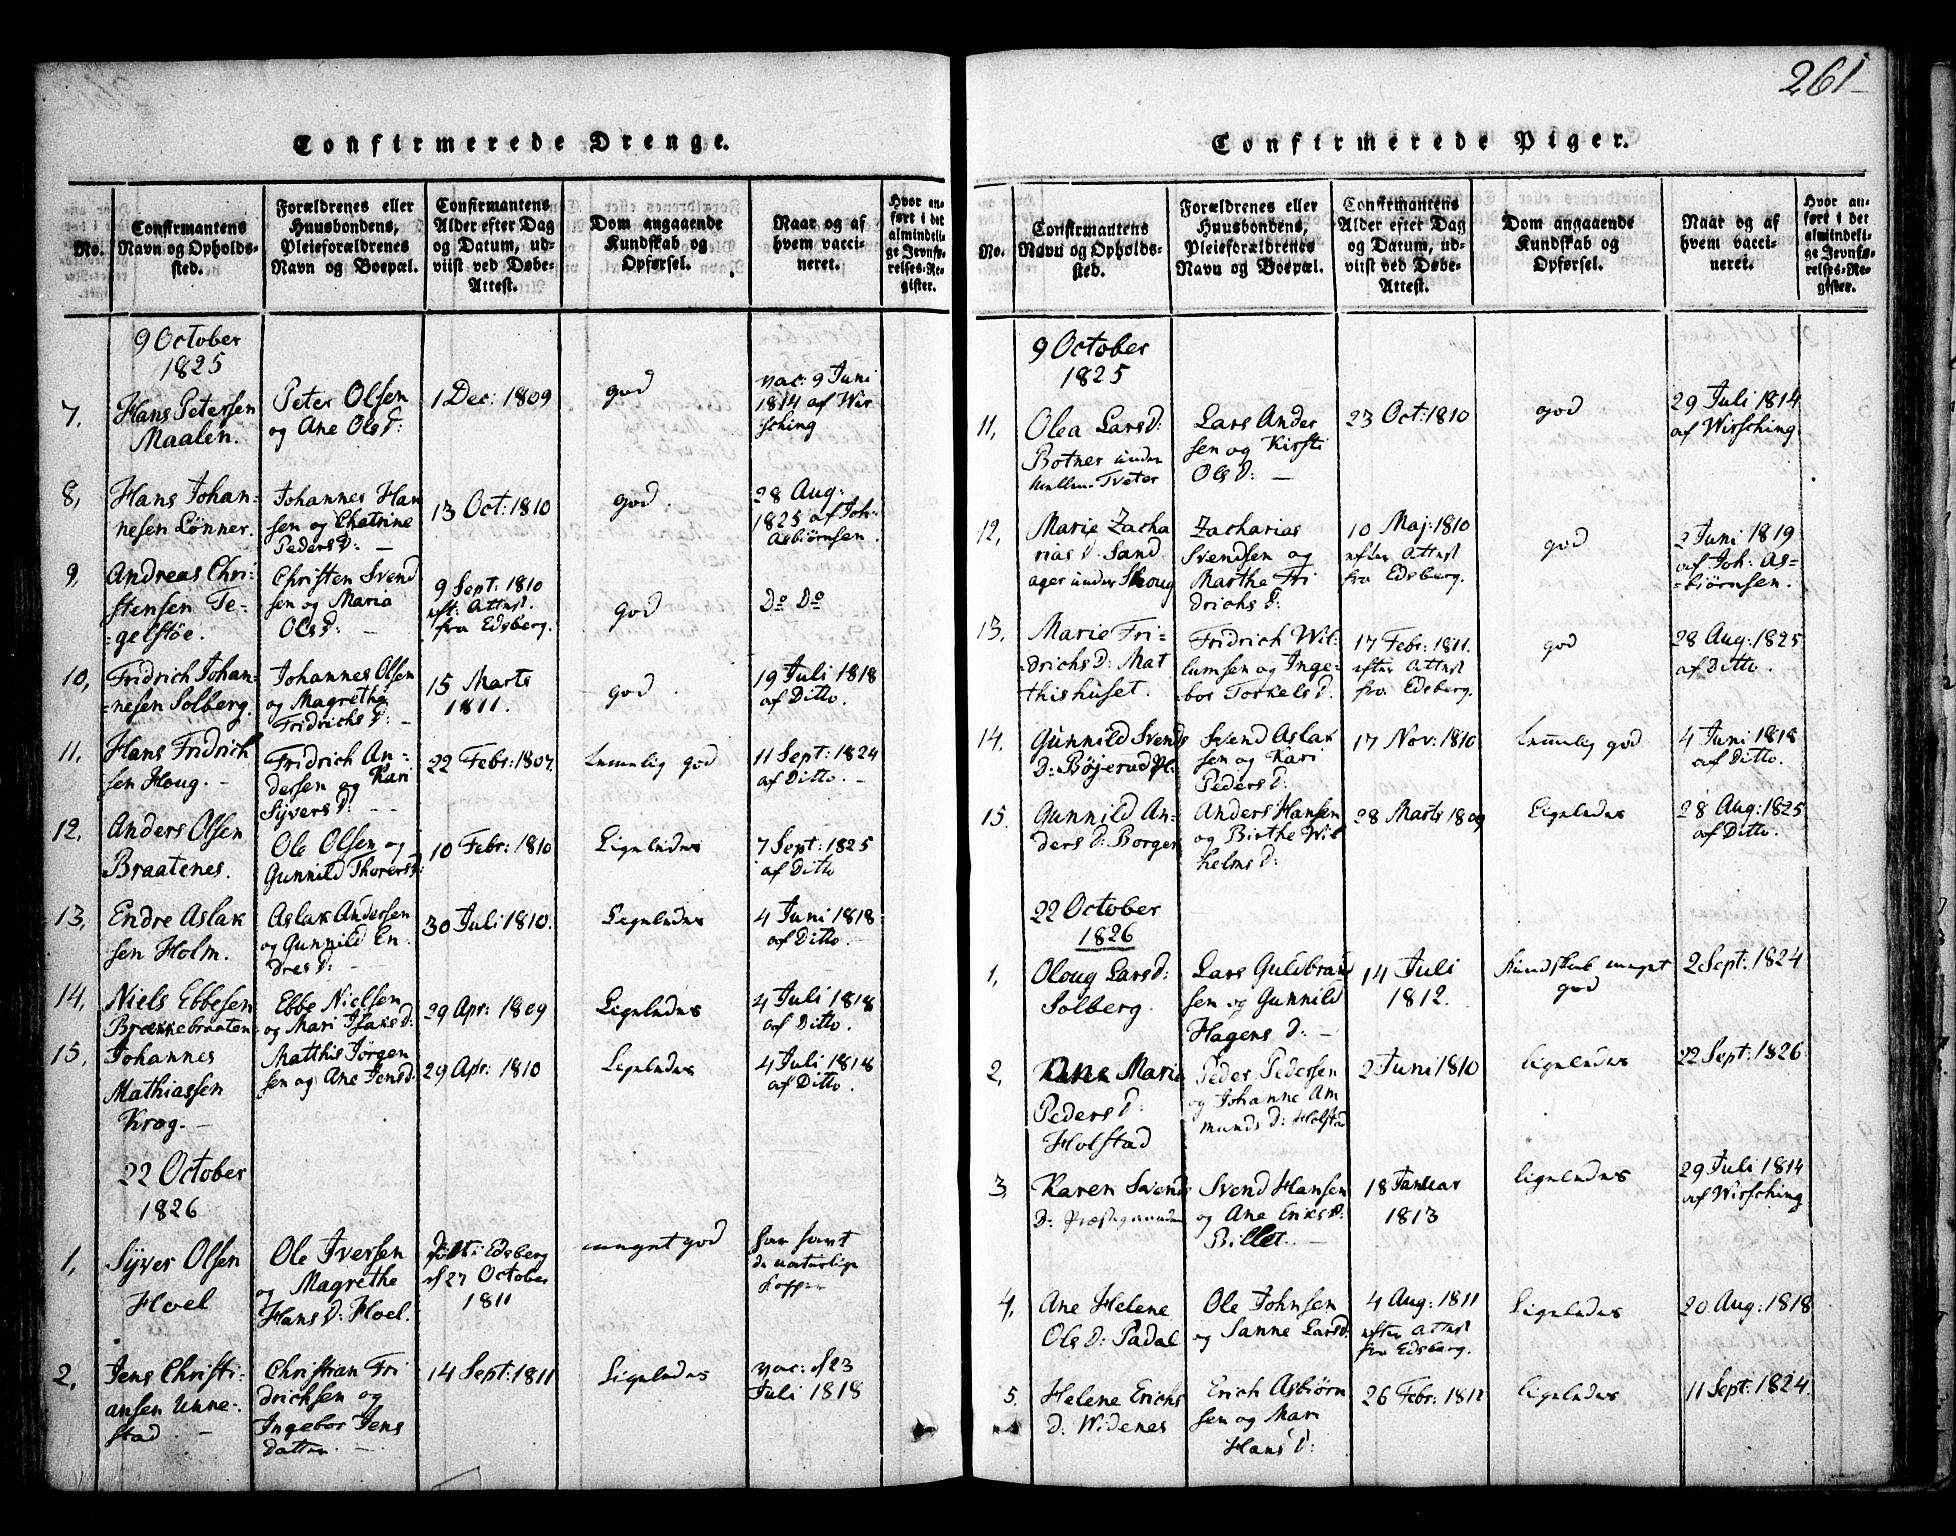 261
Confirmerede Drenge.
No.
Confirmantens
Navn og Opholds-
sted.
Forældrenes eller
Huusbondens,
Pleieforældrenes
Navn og Boepæl.
Confirmantens
Alder efter Dag
og Datum, ud-
viist ved Døbe-
Attest.
Dom angaaende
Kundskab og
Opførsel.
Naar og af
hvem vacci-
neret.
Hvor an-
ført i det
almindeli-
ge Jevnfø-
relses-Re-
gister.
9 October
1825
7.
Hans Petersen
Maalen.
Peter Olsen
og Ane Ols D:
1 Dec: 1809
god
vac: 9 Juni
1814 af Wir
sching
8,
Hans Johan-
nesen Lønner.
Johannes Han
sen og Chatrine
Peders D: —
13 Oct: 1810
god.
28 Aug:
1825 af Joh:
Asbiørnsen.
9,
Andreas Chri-
stensen Te-
-gelstöe.
Christen Svend
sen og Maria
Ols D: —
9 Sept: 1810
eft: Attest.
fra Edsberg.
god
Do Do
10,
Fridrich Johan-
-nesen Solberg.
Johannes Olsen
og Magrethe
Fridrichs D: —
15 Marts
1811.
god.
19 Juli 1818
af Ditto.
11,
Hans Fridrich
sen Houg. —
Fridrich An-
dersen og Kari
Syvers D: —
22 Febr: 1807.
temmelig god
11 Sept: 1824
af Ditto. —
12.
Anders Olsen
Braatenes.
Ole Olsen og
Gunnild Thorers D:
10 Febr: 1810
Ligeledes
7 Sept: 1825
af Ditto
13,
Endre Aslak
sen Holm.
Aslak Andersen
og Gunnild En-
dres D: —
30 Juli 1810.
Ligeledes
4 Juni 1818
af Ditto. —
14,
Niels Ebbesen
Brækkebraaten
Ebbe Nielsen
og Mari Isaks D:
29 Apr: 1809
Ligeledes
4 Juli 1818
af Ditto.
15,
Johannes
Mathiassen
Krog. —
Matthis Jørgen
sen og Ane Jens D:
29 Apr: 1810
Ligeledes
4 Juli 1818
af Ditto.
22 October
1826
1,
Syver Olsen
Hoel
Ole Iversen
og Magrethe
Hans D: Hoel.
født i Edsberg
d 27 October
1811
meget god
har havt
de naturlige
Kopper
2,
Jens Christi-
ansen Unne-
stad. —
Christian Fri
drichsen og
Ingebor Jens
Datter. —
14 Sept: 1811
Ligeledes
vac: d 23
Juli 1818
Confirmerede Piger.
No.
Confirmantens
Navn og Opholds-
sted.
Forældrenes eller
Huusbondens,
Pleieforældrenes
Navn og Boepæl.
Confirmantens
Alder efter Dag
og Datum, ud-
viist ved Døbe-
Attest.
Dom angaaende
Kundskab og
Opførsel.
Naar og af
hvem vacci-
neret.
Hvor an-
ført i det
almindeli-
ge Jevnfø-
relses-Re-
gister.
9 October
1825
11,
Olea Lars D:
Botner under
Mellem-Tveter
Lars Ander
sen og Kirsti
Ols D: —
23 Oct: 1810
god
29 Juli 1814
af Wirsching
12,
Marie Zacha
rias D: Sand
ager under Skoug
Zacharias
Svendsen og
Marthe Fri
drichs D:
10 Maj: 1810
efter Attest
fra Edsberg.
god
2 Juni 1819
af Joh: As-
-biørnsen.
13,
Marie Fri-
-drichs D: Mat
thishuset.
Fridrich Wil-
lumsen og Inge-
bor Torkels D:
17 Febr: 1811.
efter Attest
fra Edsberg.
god
28 Aug: 1825
af Ditto.
14.
Gunnild Svends
D: Bøjerud Pl:
Svend Aslak
sen og Kari
Peders D:
17 Nov: 1810
temmelig god
4 Juni 1818
af Ditto.
15.
Gunnild An-
ders D: Borgen
Anders Hansen
og Birthe Wil
helms D:
28 Marts 1809
Ligeledes
28 Aug: 1825
af Ditto.
22 October
1826
1,
Oloug Lars D:
Solberg.
Lars Guldbrand
sen og Gunnild
Hagens D: —
14 Juli
1812.
Kundskab meget
god
2 Sept: 1824
2,
Maria
Peders D:
Holstad
Peder Pedersen
og Johanne Am
munds D: Holstad
2 Juni 1810
ligeledes
22 Sept: 1826
3,
Karen Svends
D: Præstegaarden
Svend Hansen
og Ane Eriks D:
Billet. —
18 Januar
1813
ligeledes
29 Juli 1814
af Wirsching
4,
Ane Helene
Ols D: Padal
Ole Johnsen
og Sanne Lars D:
4 Aug: 1811
efter Attest
fra Edsberg.
Ligeledes
20 Aug: 1818
5.
Helene Erichs
D: Widenes
Erich Asbiørn
sen og Mari
Hans D:
26 Febr: 1812
ligeledes
11 Sept: 1824.